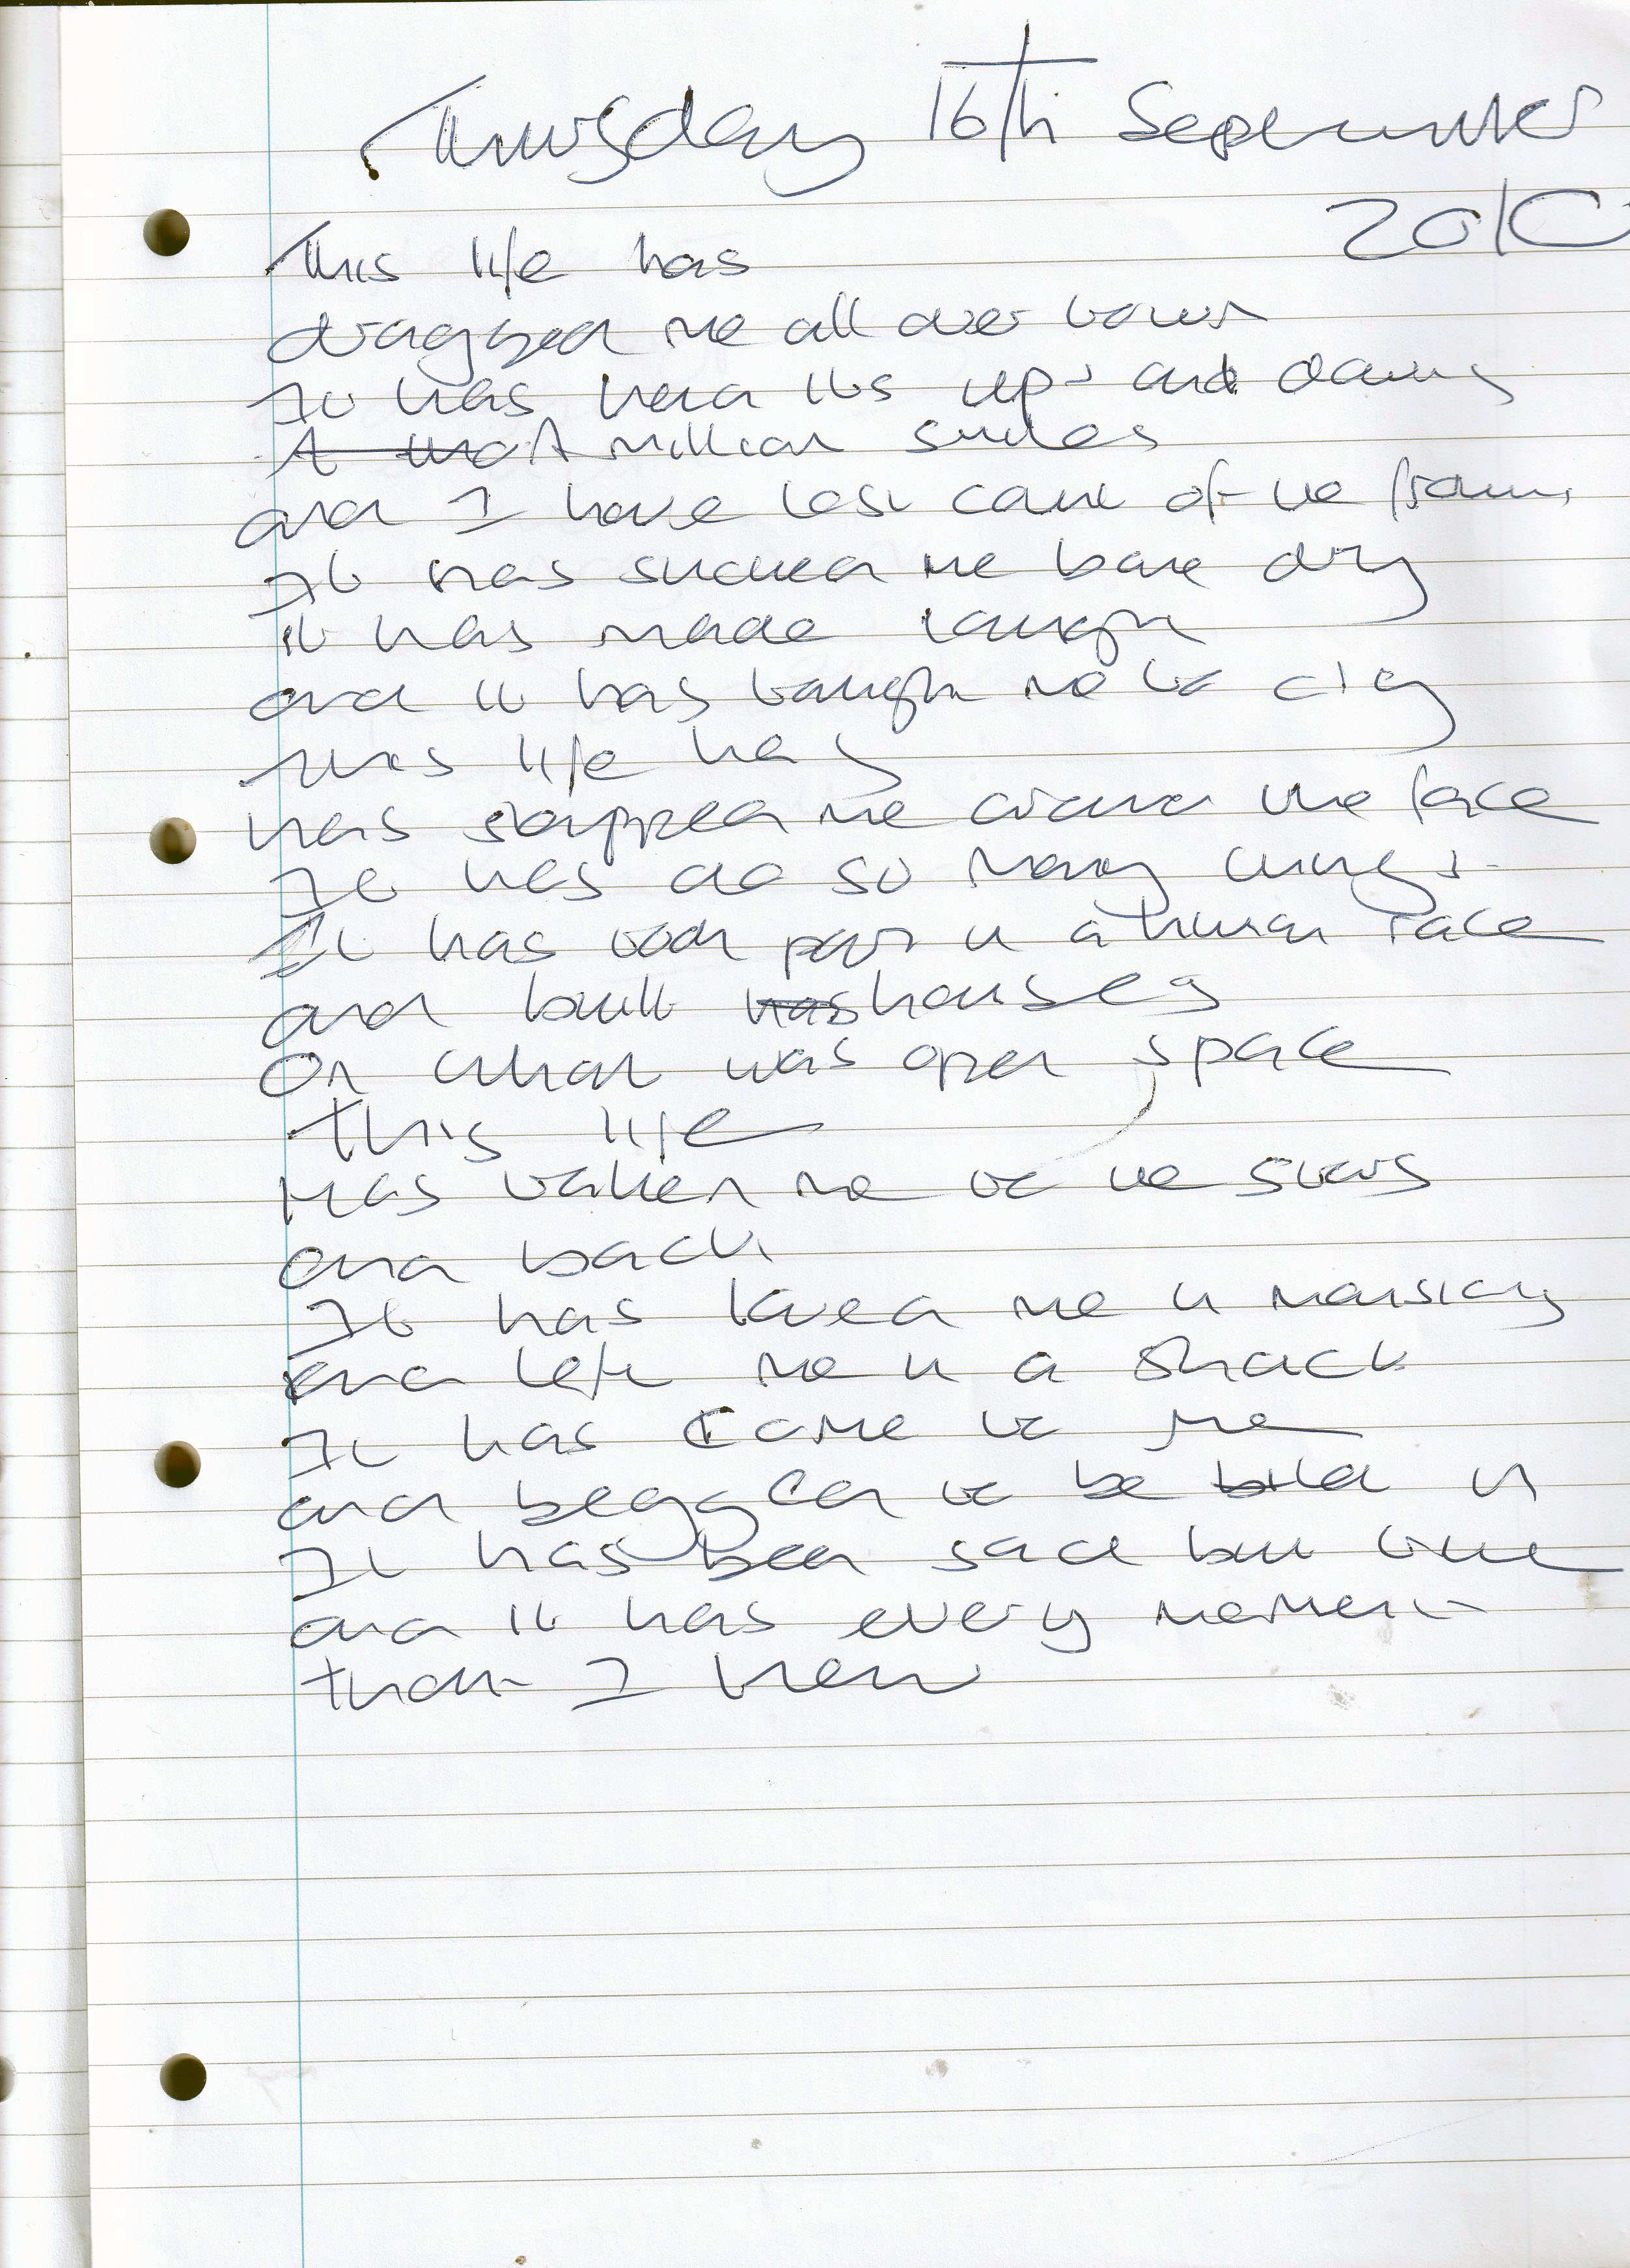 Thursday 16th September
2010
This life has
dragged me all over town
It has had its ups and downs
A million smiles
and I have lost count of the frowns
It has sucked me bone dry
it has made laugh
and it has taught me to cry
This life has
has slapped me around the face
It has do so many things
It has took part in a human race
and built has houses
On what was open space
This life
Has taken me to the stars
and back
It has loved me in mansion
and left me in a shack
It has come to me
and begged to be let in
It has been sad but true
and it has every moment
that I knew